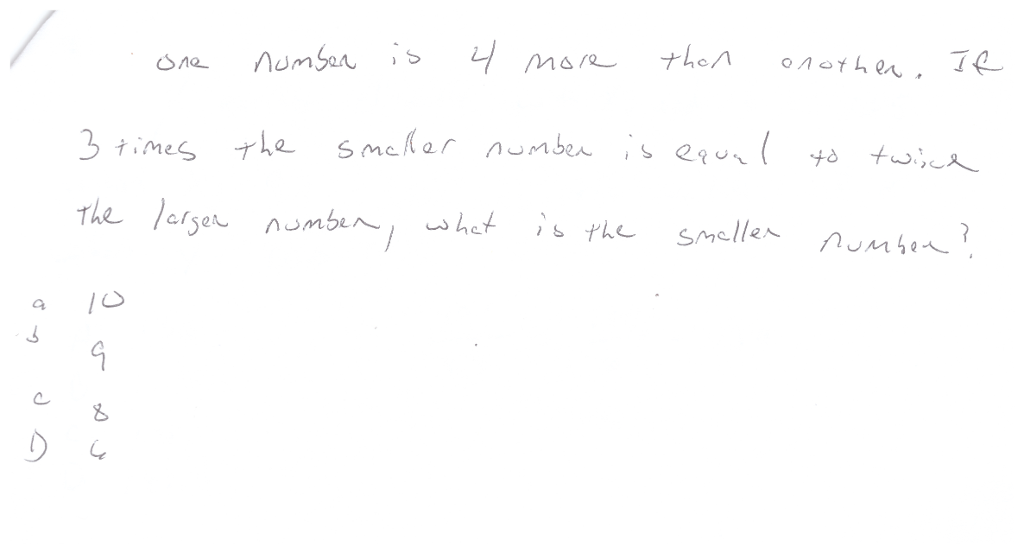 one number is 4 more than another. If
3 times the smaller number is equal to twice
the larger number, what is the smaller number?
a 10
b 9
c 8
D 6